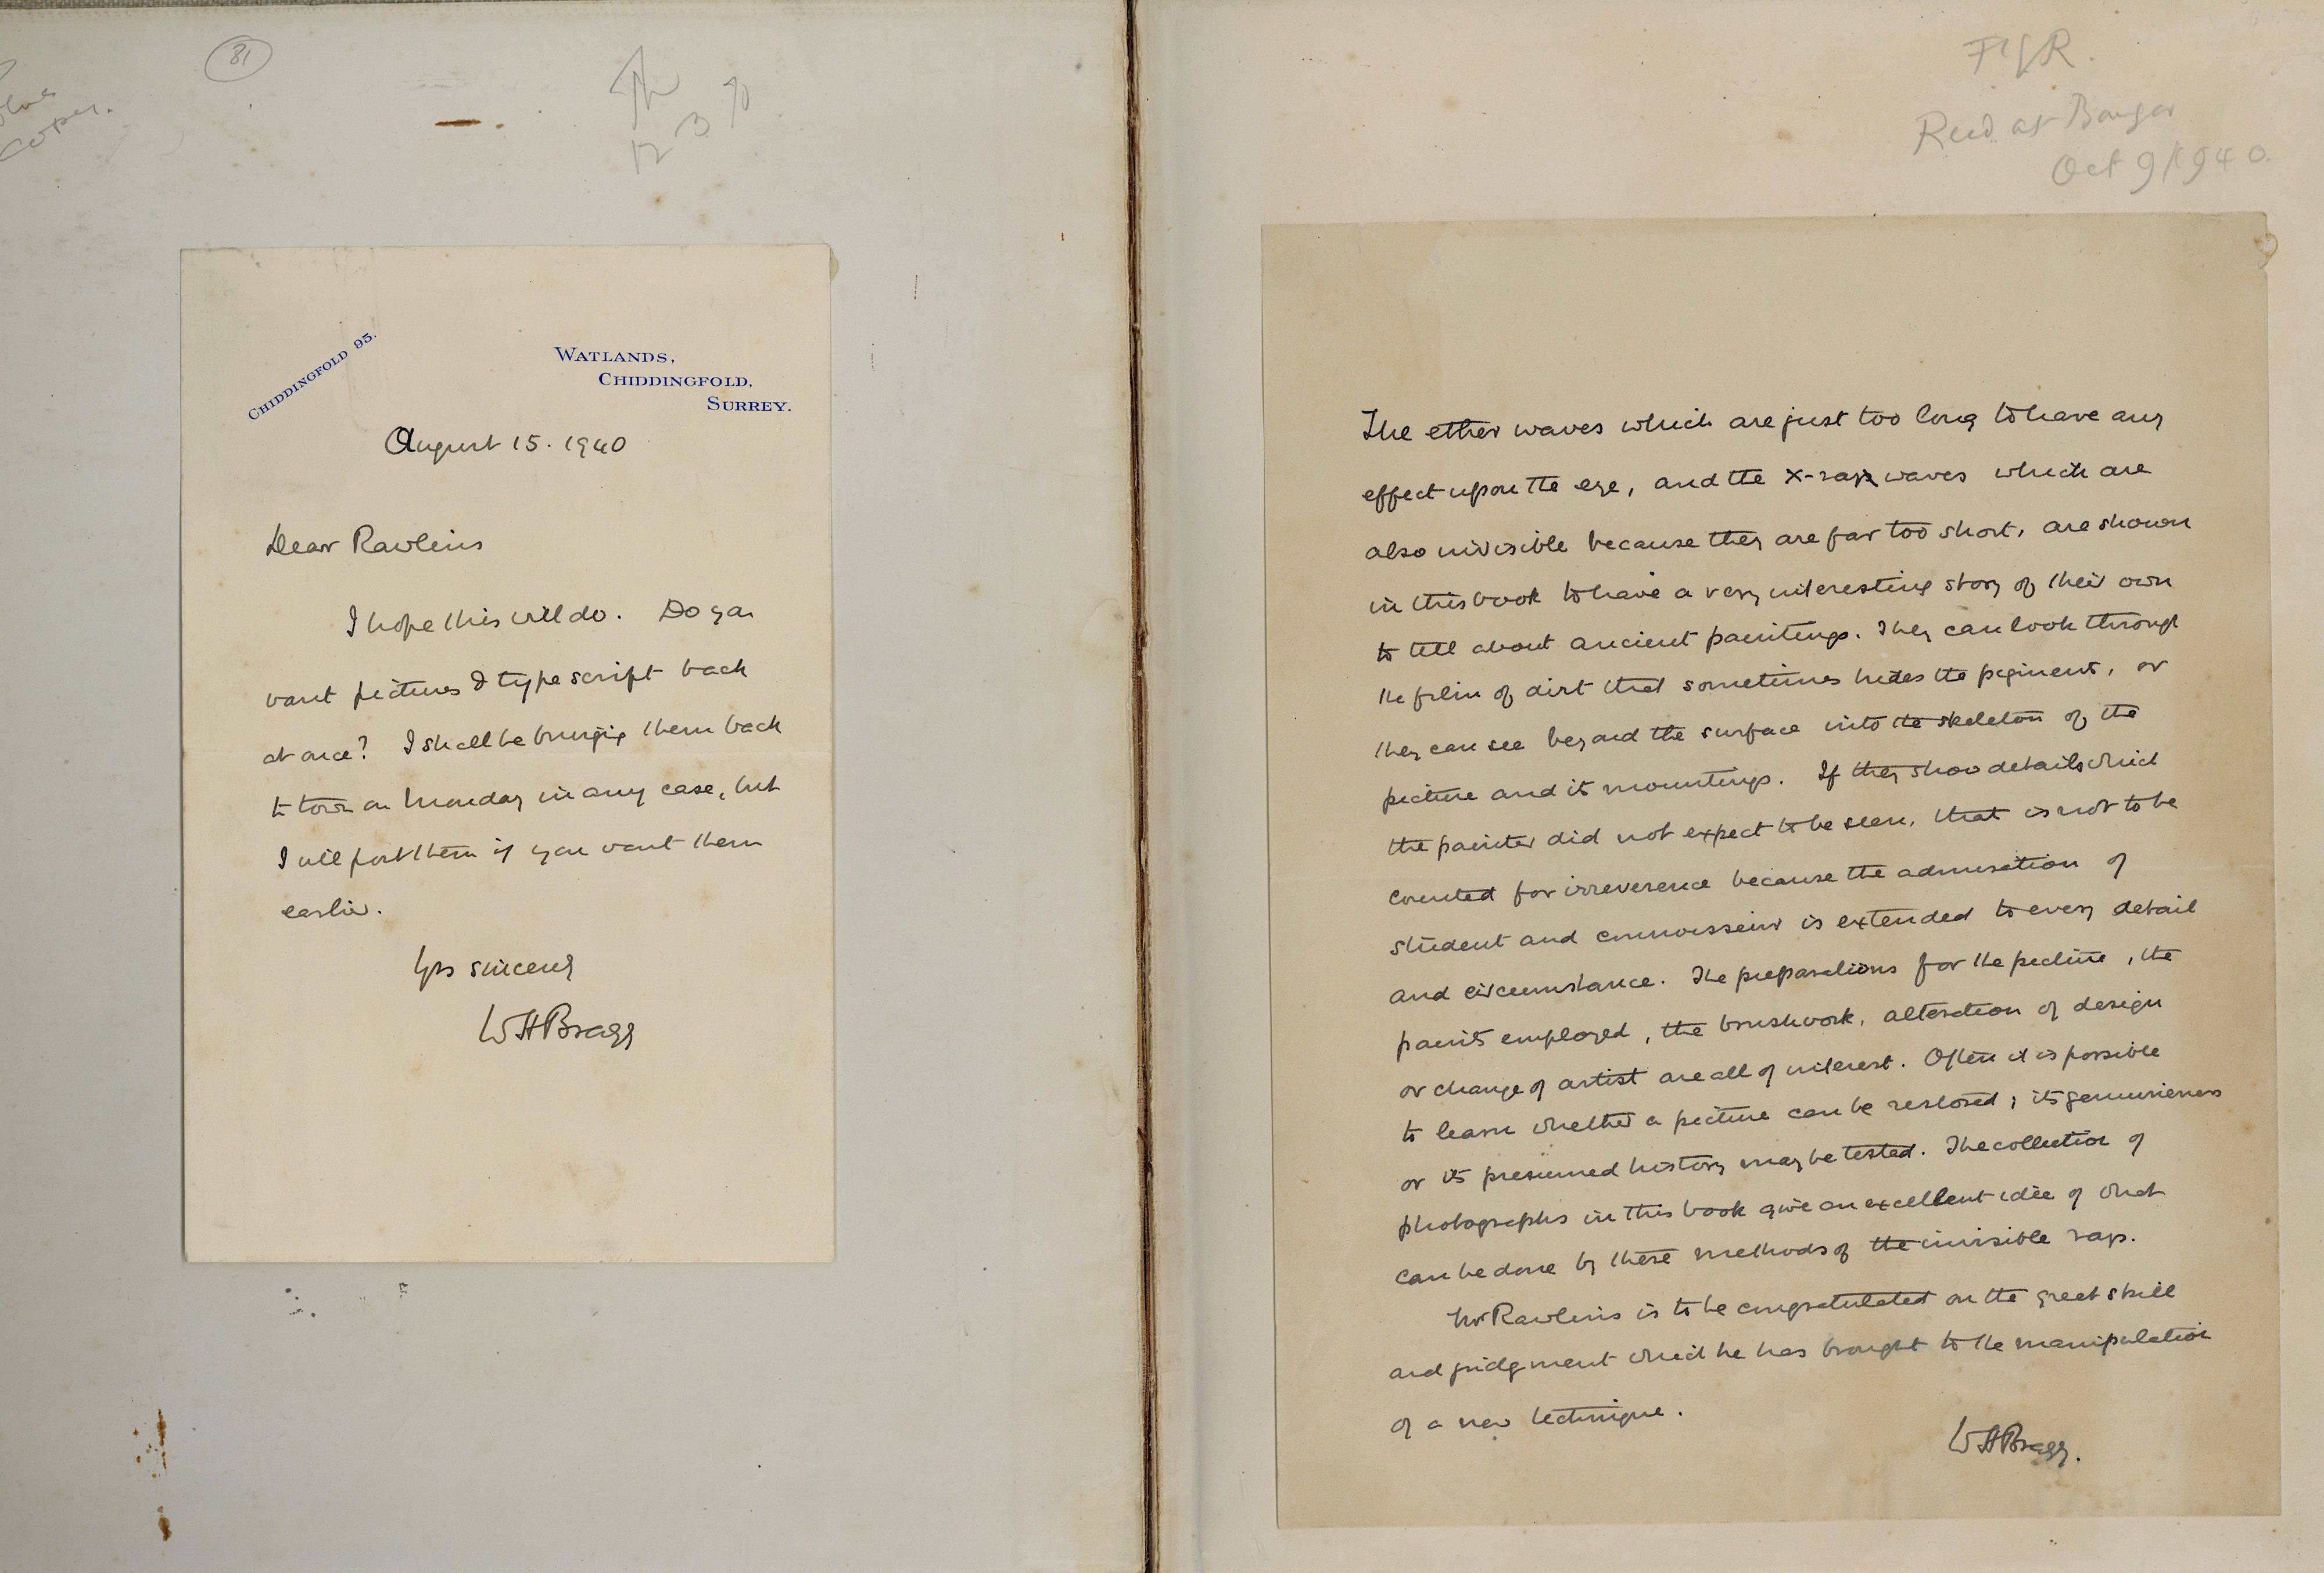 81
CHIDDINGFOLD 95.
WATLANDS,
CHIDDINGFOLD,
SURREY.
August 15. 1940
Dear Rawlins
I hope this will do. Do you
want pictures & type script back
at once? I shall be bringing them back
to town on Monday in any case, but
I will post them if you want them
earlier.
Yrs sincerely
WHBragg
FIGR.
Recd at Bangor
Oct 9/1940
The ether waves which are just too long to have any
effect upon the eye, and the X-ray waves which are
also invisible because they are far too short, are shown
in this book to have a very interesting story of their own
to tell about ancient paintings. They can look through
the film of dirt that sometimes hides the pigment, or
they can see beyond the surface into the skeleton of the
picture and its mountings. If they show details which
the painter did not expect to be seen, that is not to be
counted for irreverence because the admiration of
student and connoisseur is extended to every detail
and circumstance. The preparations for the picture, the
paints employed, the brushwork, alteration of design
or change of artist are all of interest. Often it is possible
to learn whether a picture can be restored; its genuineness
or its presumed history may be tested. The collection of
photographs in this book give an excellent idea of what
can be done by these methods of the invisible rays.
Mr Rawlins is to be congratulated on the great skill
and judgment which he has brought to the manipulation
of a new technique.
WHBragg.